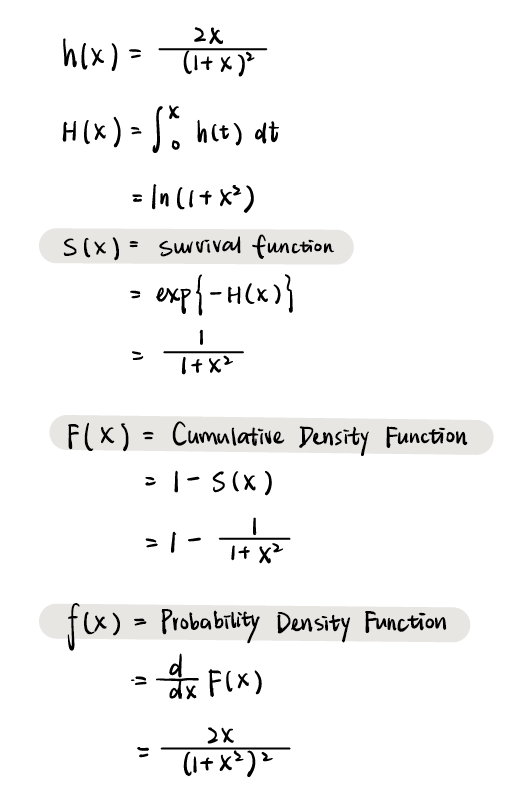 h(x) = 2x / (1+x)²
H(x) = ∫₀ˣ h(t) dt
= ln(1+x²)
S(x) = survival function
= exp{-H(x)}
= 1 / 1+x²
F(x) = Cumulative Density Function
= 1 - S(x)
= 1 - 1 / 1+x²
f(x) = Probability Density Function
= d/dx F(x)
= 2x / (1+x²)²